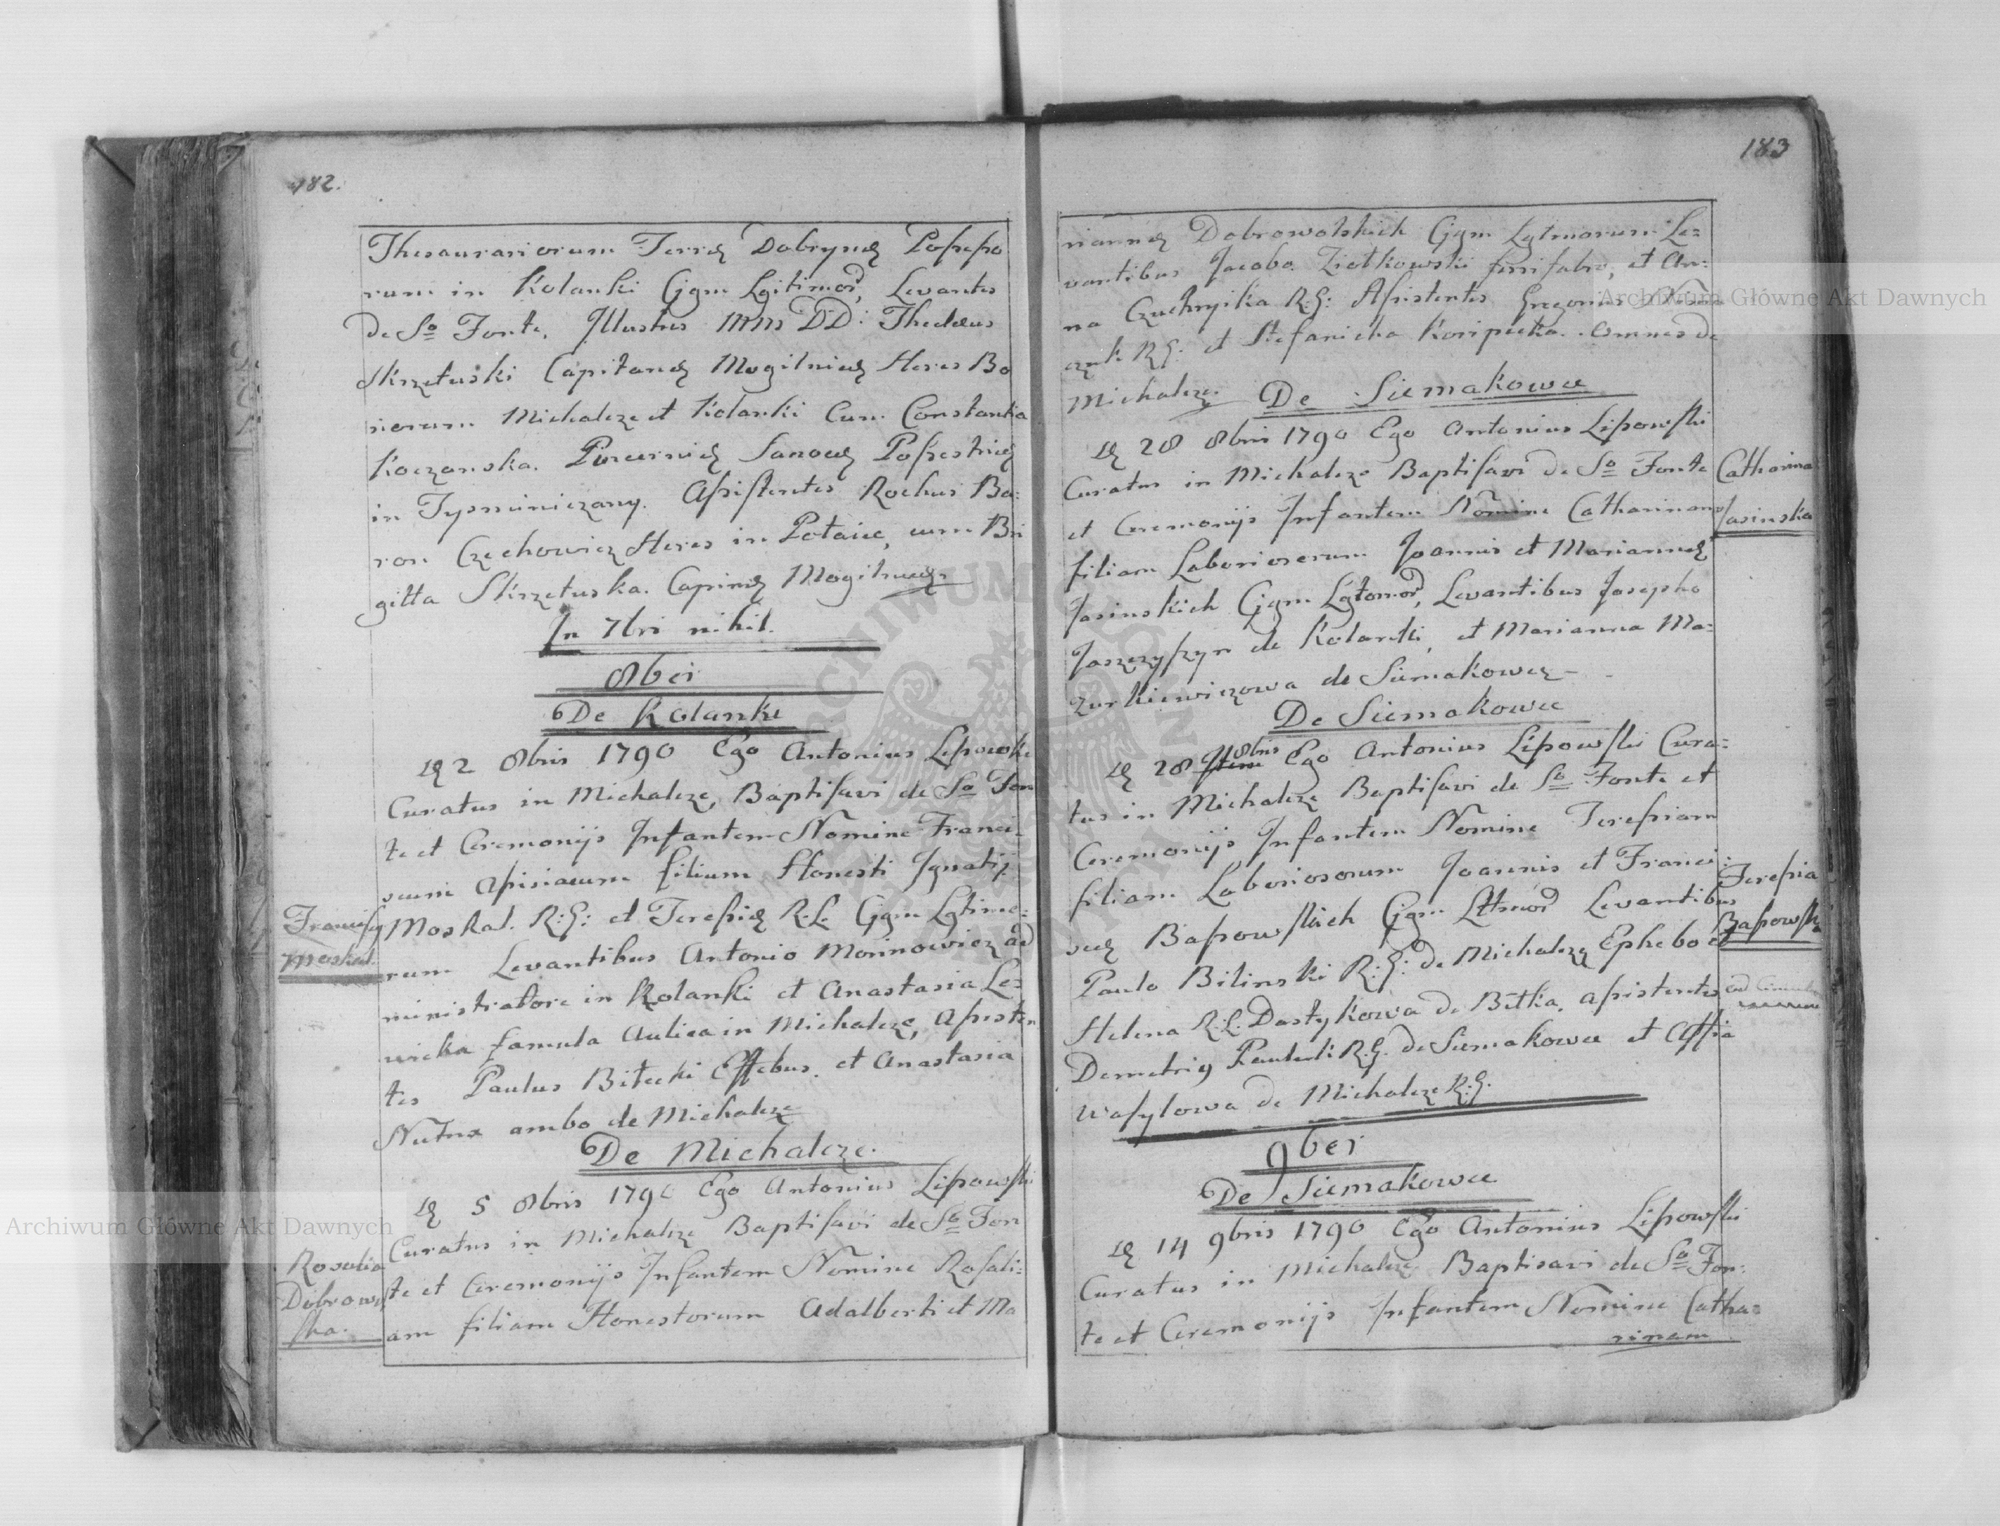 182.
Thesaurariorum Terrę Dobrynę Possesso
rum in Kolanki Cjgm Lgitimor, Levantes
De So Fonte, Jllustres MM DD: Thedeus
Skrzetuski Capitaneę Mogilnicę Heres Bo
norum Michalcze et Kolanki Cum Constantia
Koczanska. Sanocę Possestricę
in Tysminiczany. Assistentes Rochus Ba:
ron Czechowicz Heres in Potocice, cum Bri
gitta Skrzetuska. Capinę Mogilnicę.
In 7bri nihil.
8bri
De Kolanki
Dę 2 8bris 1790 Ego Antonius Lipowski
Curatus in Michalcze, Baptisavi de So Fon
te et Ceremonijs Infantem Nomine Franci-
scum filium Honesti Jgnatij
Moskal. R:G: et Teressię R.L. Cjgm Lgtimo-
rum Levantibus Antonio Morinowicz ad
ministratore in Kolanki et Anastasia Le-
wicka famula Aulica in Michalcze, Assisten
tes Paulus Bitecki Effebus. et Anastasia
Nutrix ambo de Michalcze
De Michalcze.
Dę 5 8bris 1790 Ego Antonius Lipowski
Curatus in Michalcze Baptisavi de So Fon
te et Ceremonijs Infantem Nomine Rosali-
am filiam Honestorum Adalberti et Ma
Francisq
Moskal.
Rosalia
Dobrows
ska.
183
riannę Dobrowolskich Cjgm Lgtmorum Le-
vantibus Jacobo Ziołkowski ferrifabro, et An-
na Czuchryika R.G: Assistentes
czuk R.G: et Stefanicha Koripecka. omnes de
Michalcze.
De Siemakowce
Dę 28 8bris 1790 Ego Antonius Lipowski
Curatus in Michalcze Baptisavi de So Fonte
et Ceremonijs Infantem Nomine Catharinam
filiam Laboriosorum Joannis et Mariannę
Jasinskich Cjgm Lgtimor, Levantibus Josepho
Jaszczyszyn de Kolanki, et Marianna Ma-
zurkiewiczowa de Siemakowcę
De Siemakowce
Dę 28 8bris Ego Antonius Lipowski Cura-
tus in Michalcze Baptisavi de So Fonte et
Ceremonijs Infantem Nomine Teressiam
filiam Laboriosorum Joannis et Franci-
scę Bassowskich Cjgm Ltmor Levantibus
Paulo Bilinski R:G: de Michalczę Ephebo et
Helena R.L. Dastykowa de Bełka, Assistentes
Demetriq Pauluk R.G. de Siemakowce et
Wasylowa de Michalcze R:G.
9bri
De Siemakowce
Dę 14 9bris 1790 Ego Antonius Lipowski
Curatus in Michalcze Baptisavi de So Fon-
te et Ceremonijs Infantem Nomine Catha-
rinam
Catharina
Jasinska
Teressia
Bassowska
Archiwum Główne Akt Dawnych
Archiwum Główne Akt Dawnych